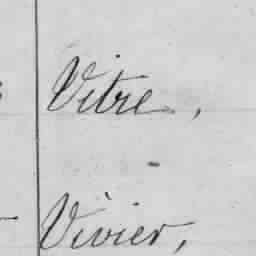 Vitre,
Vivier,